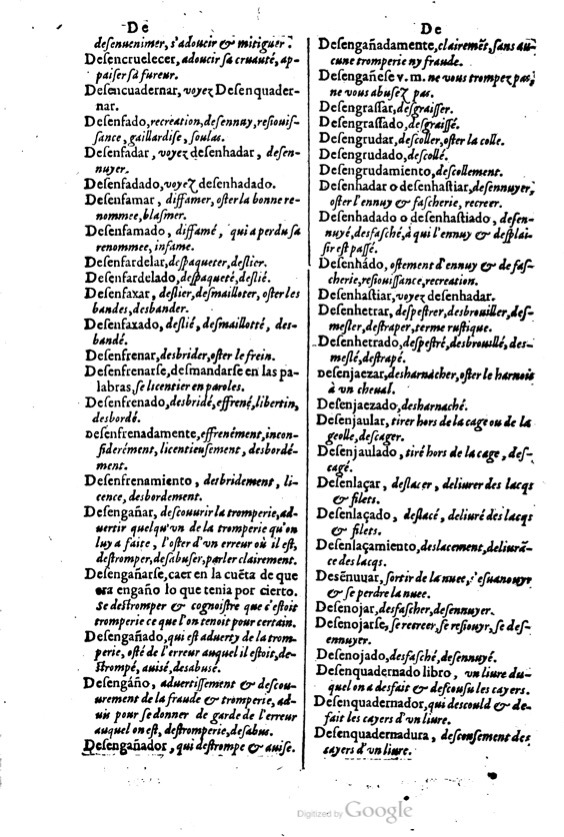 De
desenuenimer, s'adoucir & mitiguer.
Desencruelecer, adoucir sa cruauté, ap-
paiser sa fureur.
Desencuadernar, voyez Desenquader-
nar.
Desenfado, recreation, desennuy, resiouis-
sance, gaillardise, soulas.
Desenfadar, voyez desenhadar, desen-
nuyer.
Desenfadado, voyez desenhadado.
Desenfamar, diffamer, oster la bonne re-
nommee, blasmer.
Desenfamado, diffamé, qui a perdu sa
renommee, infame.
Desenfardelar, despaqueter, deslier.
Desenfardelado, despaqueté, deslié.
Desenfaxar, deslier, desmailloter, oster les
bandes, desbander.
Desenfaxado, deslié, desmaillotté, des-
bandé.
Desenfrenar, desbrider, oster le frein.
Desenfrenarse, desmandarse en las pa-
labras, se licentier en paroles.
Desenfrenado, desbridé, effrené, libertin,
desbordé.
Desenfrenadamente, effrenément,incon-
siderément, licentieusement, desbordé-
ment.
Desenfrenamiento, desbridement, li-
cence, desbordement.
Desengañar, descouurir la tromperie, ad-
uertir quelqu'vn de la tromperie qu'on
luy a faite, l'oster d'vn erreur où il est,
destromper, desabuser, parler clairement.
Desengañarse, caer en la cuẽta de que
era engaño lo que tenia por cierto.
Se destromper & cognoistre que c'estoit
tromperie ce que l'on tenoit pour certain.
Desengañado, qui est aduerty de la trom-
perie, osté de l'erreur auquel il estoit, de-
strompé, auisé, desabusé.
Desengáño, aduertissement & descou-
urement de la fraude & tromperie, ad-
uis pour se donner de garde de l'erreur
auquel on est, destromperie, desabus.
Desengañador, qui destrompe & auise.
De
Desengañadamente, clairemẽt, sans au-
cune tromperie ny fraude.
Desengañese v. m. ne vous trompez pas,
ne vous abusez pas.
Desengrassar, desgraisser.
Desengrassado, desgraissé.
Desengrudar, descoller, oster la colle.
Desengrudado, descollé.
Desengrudamiento, descollement.
Desenhadar o desenhastiar, desennuyer,
oster l'ennuy & fascherie, recreer.
Desenhadado o desenhastiado, desen-
nuyé, desfasché, à qui l'ennuy & desplai-
sir est passé.
Desenhádo, ostement d'ennuy & de fas-
cherie, resiouissance, recreation.
Desenhastiar, voyez desenhadar.
Desenhetrar, despestrer, desbrouiller, des-
mesler, destraper, terme rustique.
Desenhetrado, despestré, desbrouillé, des-
meslé, destrapé.
Desenjaezar, desharnacher, oster le harnois
à vn cheual.
Desenjaezado, desharnaché.
Desenjaular, tirer hors de la cage ou de la
geolle, descager.
Desenjaulado, tiré hors de la cage, des-
cagé.
Desenlaçar, deslacer, deliurer des lacqs
& filets.
Desenlaçado, deslacé, deliuré des lacqs
& filets.
Desenlaçamiento, deslacement, deliurã-
ce des lacqs.
Desẽnuuar, sortir de la nuee, s'esuanouyr
& se perdre la nuee.
Desenojar, desfascher, desennuyer.
Desenojarse, se recreer, se resiouyr, se des-
ennuyer.
Desenojado, desfasché, desennuyé.
Desenquadernado libro, vn liure du-
quel on a desfait & descousu les cayers.
Desenquadernador, qui descould & de-
fait les cayers d'vn liure.
Desenquadernadura, descousement des
cayers d'vn liure.
Digitized by Google